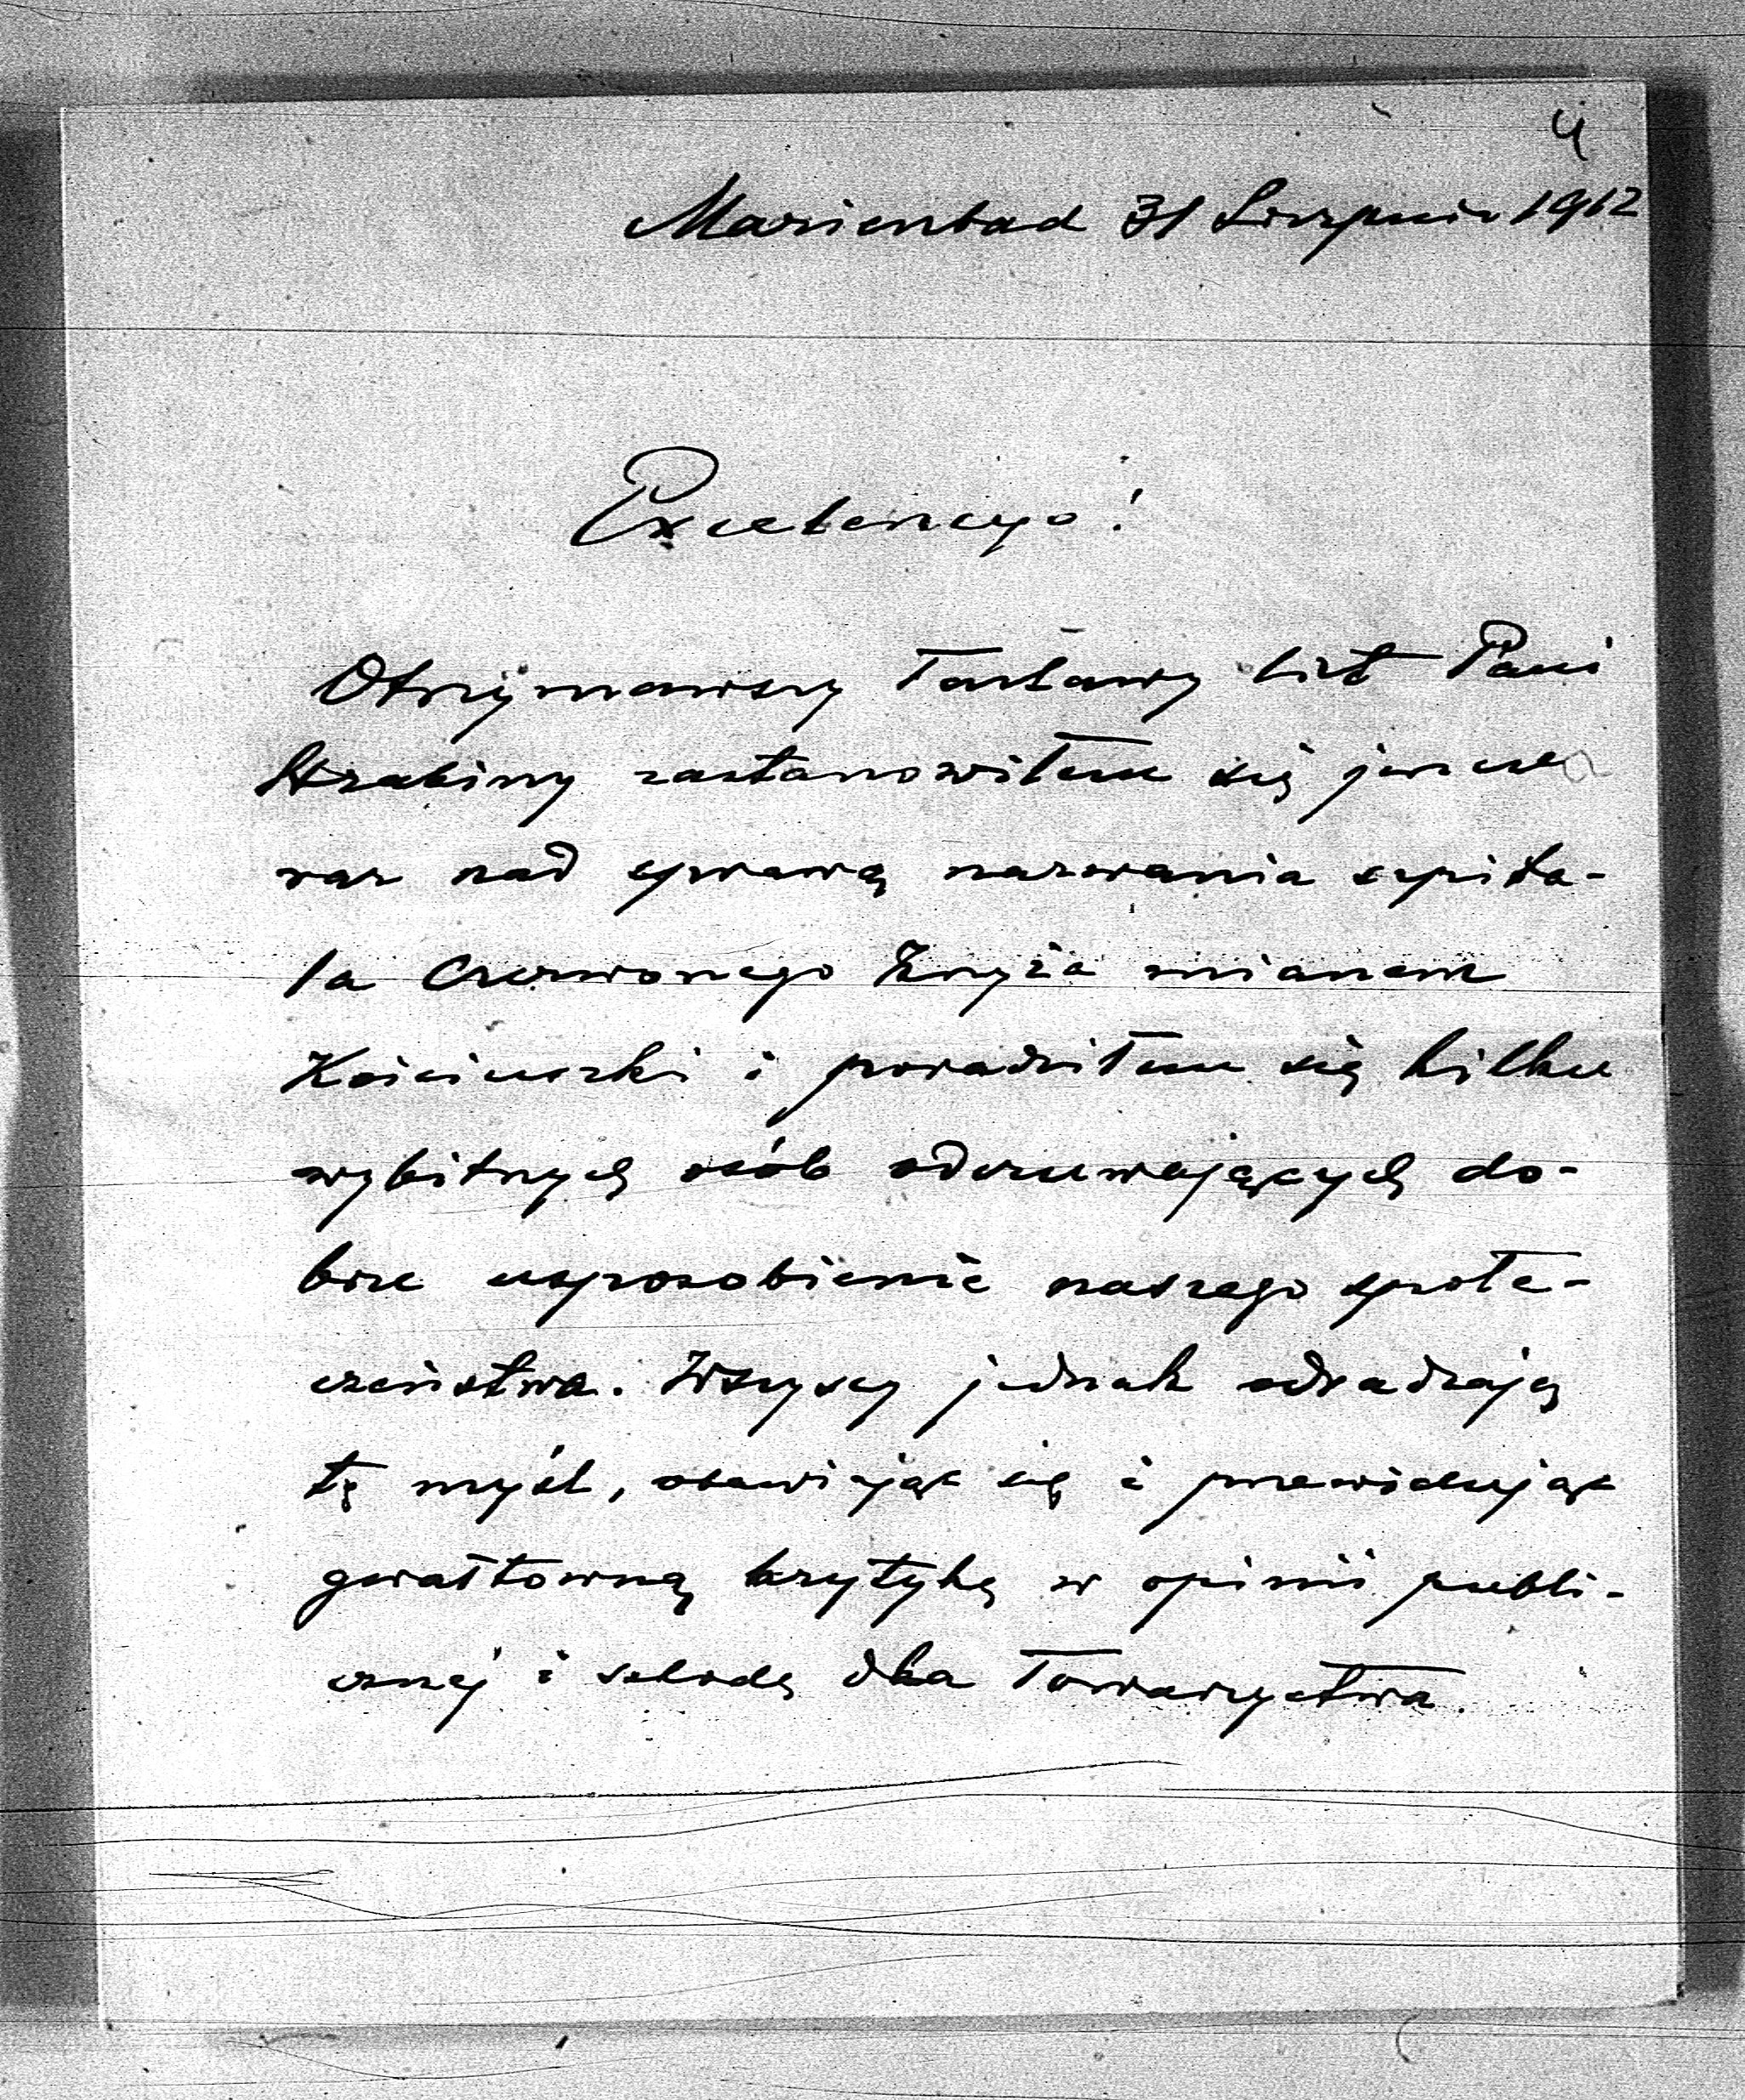 4
Marienbad 31 Sierpnia 1912
Excelencyo!
Otrzymawszy łaskawy list Pani
Hrabiny zastanowiłem się jeszcze
raz nad sprawą nazwania szpita-
la Czerwonego Krzyża mianem
Kościuszki i poradziłem się kilku
wybitnych osób odczuwających do-
brze usposobienie naszego społe-
czeństwa. Wszyscy jednak odradzają
tę myśl, obawiając się i przewidując
gwałtowną krytykę w opinii publi-
cznej i szkodę dla Towarzystwa.